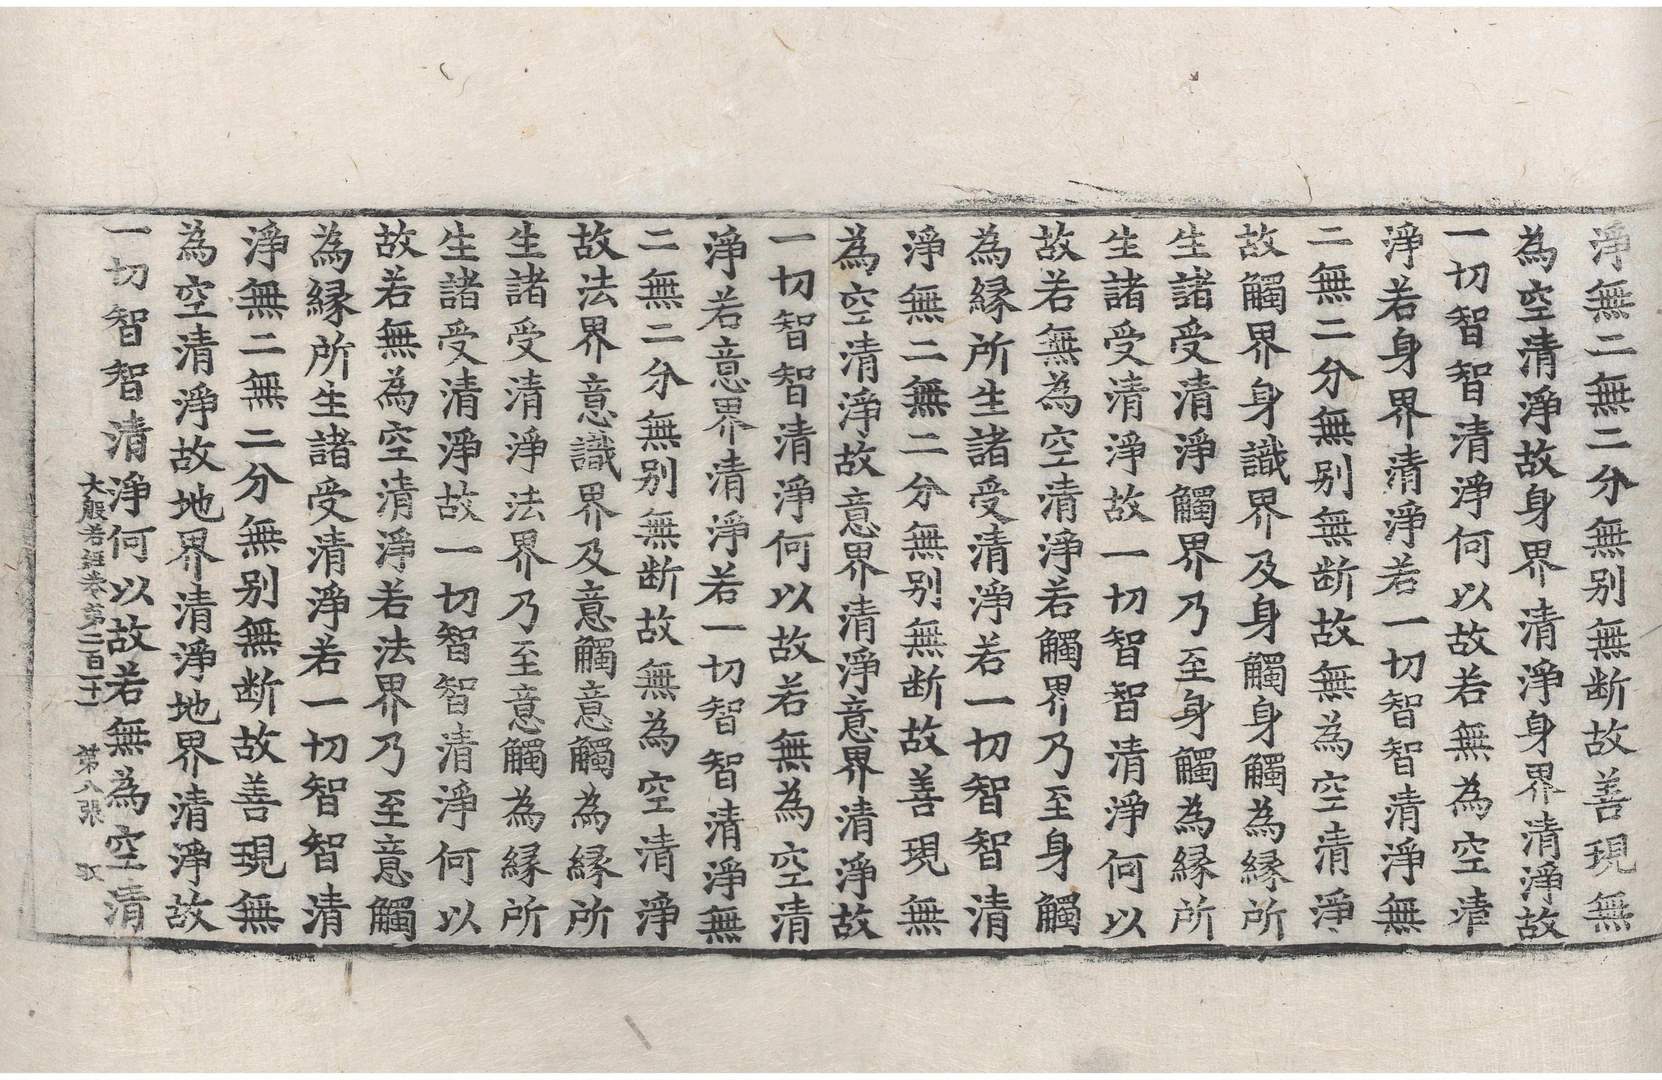 淨無二無二分無别無断故善現無
為空清淨故身界清淨身界清淨故
一切智智清淨何以故若無為空清
淨若身界清淨若一切智智清淨無
二無二分無别無断故無為空清淨
故觸界身識界及身觸身觸為縁所
生諸受清淨觸界乃至身觸為縁所
生諸受清淨故一切智智清淨何以
故若無為空清淨若觸界乃至身觸
為縁所生諸受清淨若一切智智清
淨無二無二分無别無断故善現無
為空清淨故意界清淨意界清淨故
一切智智清淨何以故若無為空清
淨若意界清淨若一切智智清淨無
二無二分無别無断故無為空清淨
故法界意識界及意觸意觸為縁所
生諸受清淨法界乃至意觸為縁所
生諸受清淨故一切智智清淨何以
故若無為空清淨若法界乃至意觸
為縁所生諸受清淨若一切智智清
淨無二無二分無别無断故善現無
為空清淨故地界清淨地界清淨故
一切智智清淨何以故若無為空清
大般若経卷第二百二十一 第八張